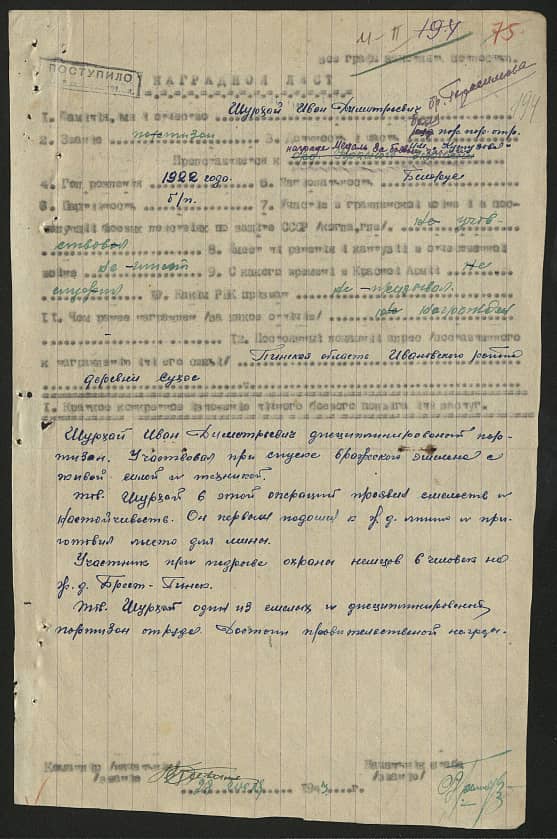 М-П 194 75.
все графы заполнять полностью.
ПОСТУПИЛО
НАГРАДНОЙ ЛИСТ
бр. Герасимова
194
1. Фамилия, имя и отчество Шурхай Иван Димитриевич
2. Звание партизан 3. Должность и часть
Представляется к награде Медаль За боевые
4. Год рождения 1922 года. 5. Национальность Белорус
6. Партийность б/п. 7. Участие в гражданской войне и в пос-
ледующих боевых действиях по защите СССР /когда, где/ Не учав-
ствовал 8. Имеет ли ранения и контузии в отечественной
войне Не-имеет 9. С какого времени в Красной Армии Не
служил 10. Каким РВК призван Не-призывал.
11. Чем ранее награжден /за какие отличия/ Не награжден
12. Постоянный домашний адрес /представляемого
к награждению и его семьи/ Пинской области Ивановского района
деревня Сухое
I. Краткое конкретное изложение личного боевого подвига или заслуг.
Шурхай Иван Димитриевич дисциплинированый пар-
тизан. Участвовал при спуске вражеского эшелона с
живой силой и техникой.
Тов. Шурхай в этой операций проявил смелость и
настойчивость. Он первым подошел к ж.д. линии и при-
готовил место для мины.
Участник при подрыве охраны немцев 8 человек на
ж.д. Брест-Пинск.
Тов. Шурхай один из смелых и дисциплинированых
партизан отряда. Достоин правительственой награды.
Командир /начальник/ Начальник штаба
/звание/ /звание/
194 г.